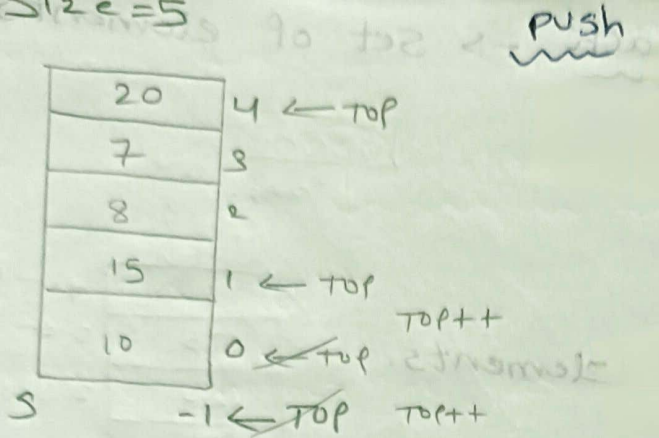 Size=5
push
20 4 ← TOP
7 3
8 2
15 1 ← TOP
TOP++
10 0 ← TOP
S -1 ← TOP TOP++